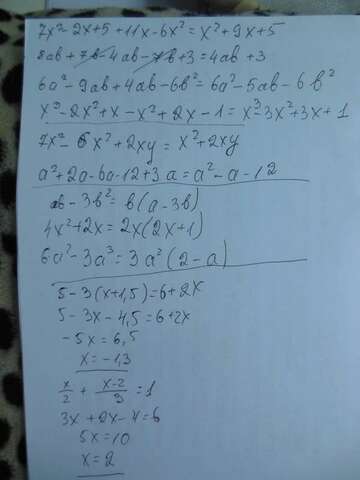 7x²-2x+5+11x-6x²=x²+9x+5
8ab+7b-4ab-7b+3=4ab+3
6a²-9ab+4ab-6b²=6a²-5ab-6b²
x³-2x²+x-x²+2x-1=x³-3x²+3x+1
7x²-6x²+2xy=x²+2xy
a²+2a-6a-12+3a=a²-a-12
ab-3b²=b(a-3b)
4x²+2x=2x(2x+1)
6a²-3a³=3a²(2-a)
5-3(x+1,5)=6+2x
5-3x-4,5=6+2x
-5x=6,5
x=-1,3
x/2+(x-2)/3=1
3x+2x-4=6
5x=10
x=2